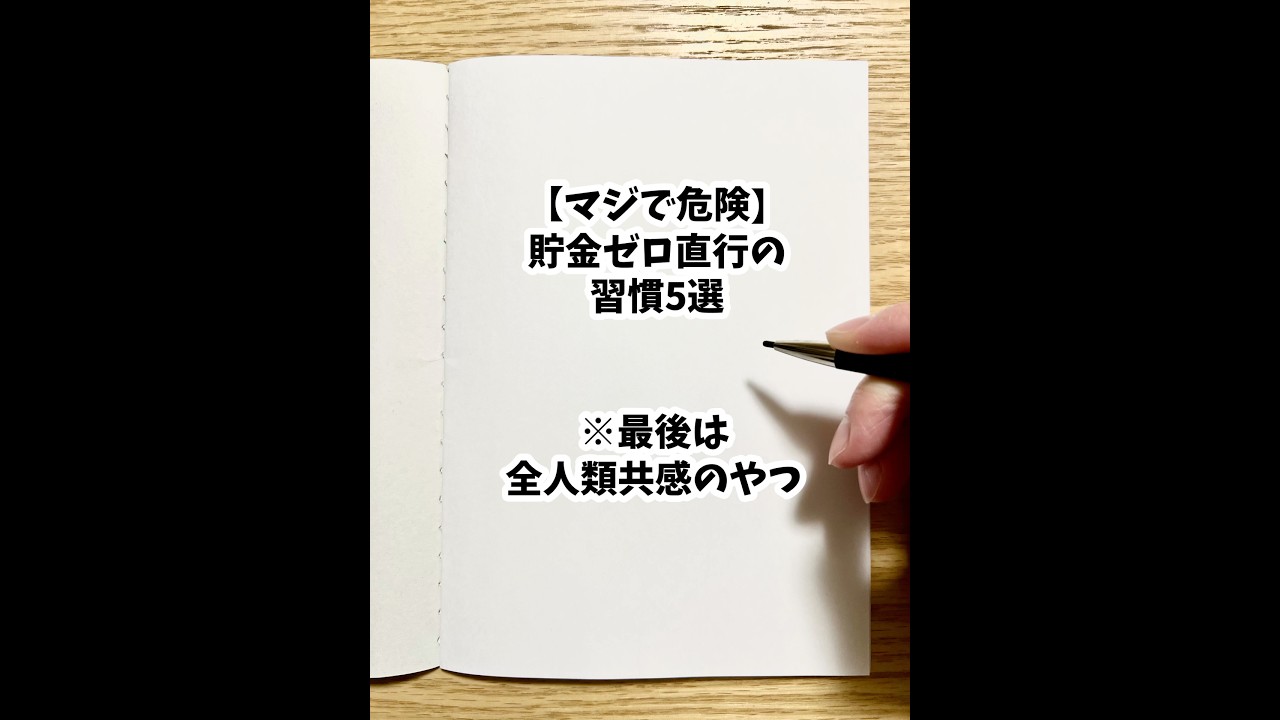 【マジで危険】
貯金ゼロ直行の
習慣5選
※最後は
全人類共感のやつ